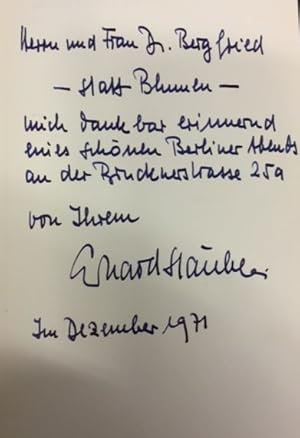 Herrn und Frau Dr. Bergfried
— statt Blumen —
mich dankbar erinnernd
eines schönen Berliner Abends
an der Brucknerstrasse 25a
von Ihrem
Im Dezember 1971